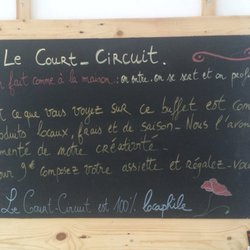 Le Court-Circuit.
fait comme à la maison : on entre, on se sert et on
ce que vous voyez sur ce buffet est
locaux, frais et de saison - Nous l'
de notre créativité -
9€ composez votre assiette et régalez-vous
Le Court-Circuit est 100% locaphile